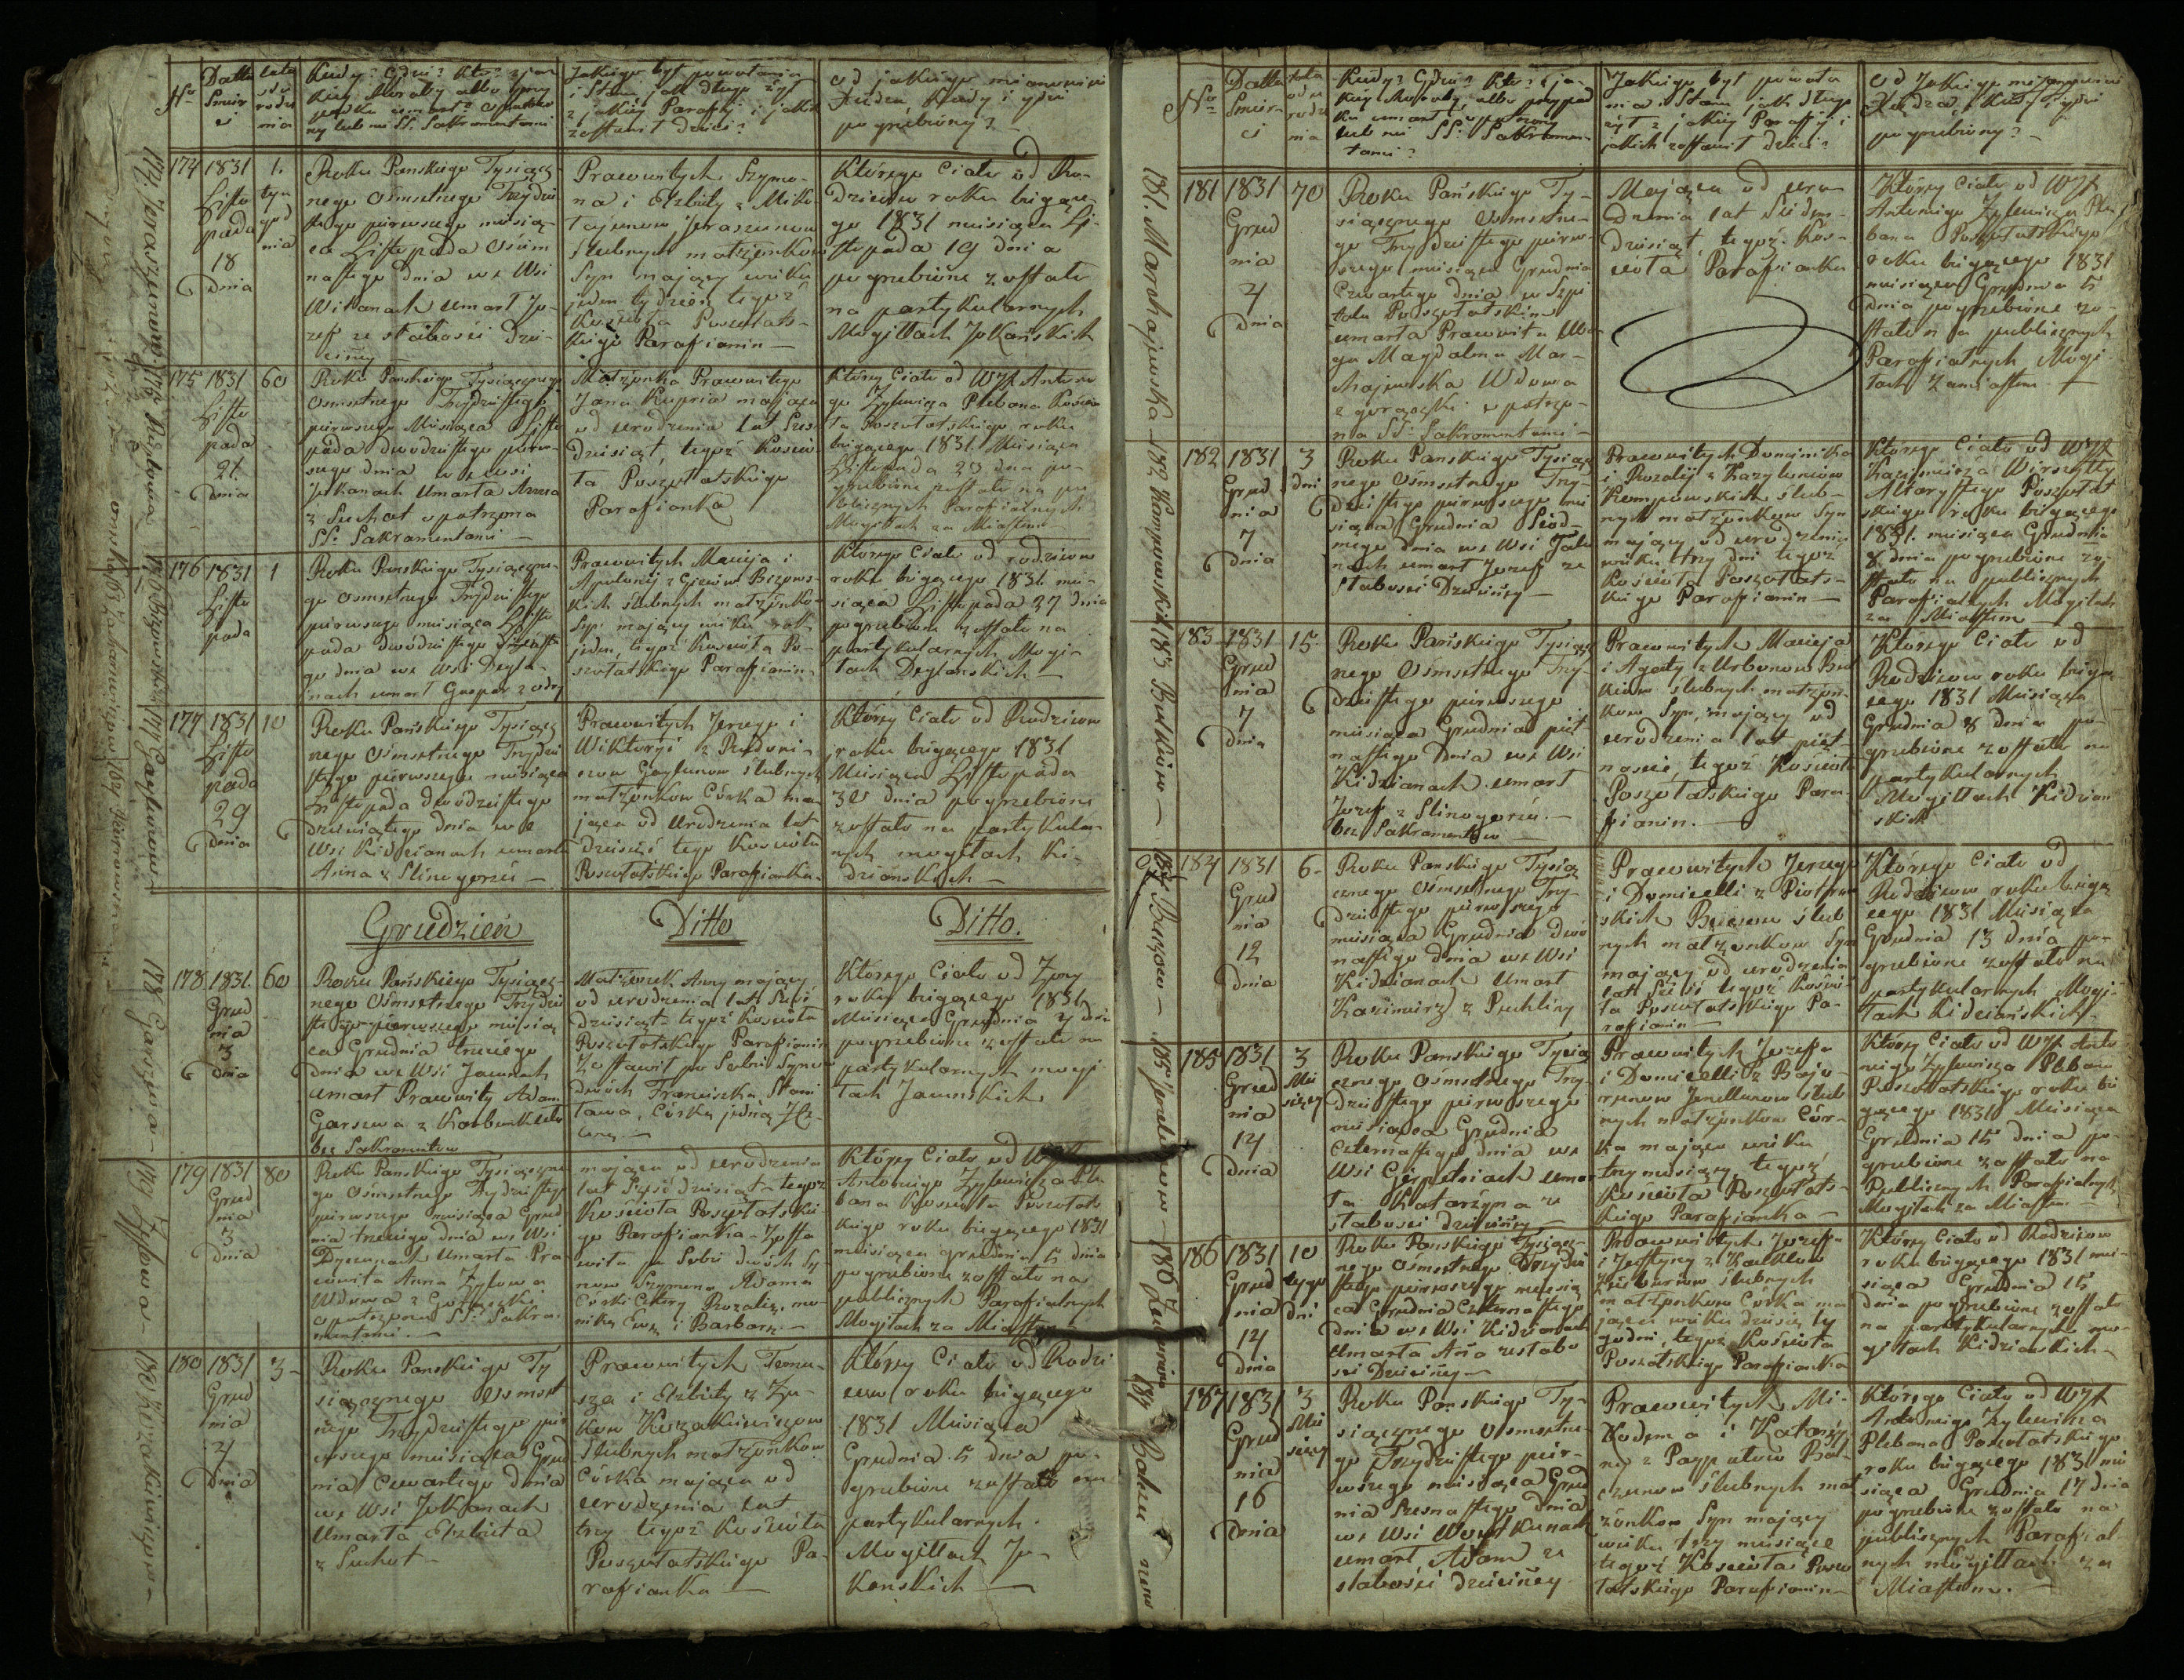 No
Datta Smier ci
lata od u rodze nia
Kiedy? Gdzie? Kto? z jakiey Choroby albo przypadku umarł?
Jakiego był powołania i Stanu jak długo żył z jakiey Parafii i jakie zostawił dzieci?
od jakiego mianowicie Xiędza, Kiedy i gdzie pogrzebiony?
174
1831
Listo
pada
18
dnia
1.
tyg
god
nia
Roku Panskiego Tysiącz-
nego Osmsetnego Trzydzie
stego pierwszego miesią-
ca Listopada Osim
nastego dnia we Wsi
umarł Jo-
zef ze słabości Dzie-
ciney
Prawowitych Szymo-
na i Elżbiety z Miko
Jeraszunow
Slubnych małżonkow
Syn maiący wieku
jeden tydzień tegoż
Kościoła Poszołats-
kiego Parafianin —
Którego Ciało od Ro-
dziców roku bieżące-
go 1831 miesiąca Li-
stopada 19 dnia
pogrzebione zostało
na partykularnych
Mogiłłach Jokańskich
175
1831
Listo
pada
21
dnia
60
Roku Panskiego Tysiącznego
Osmsetnego Trzydziestego
pierwszego Miesiąca Listo
pada dwódziestego pierw-
szego dnia we wsi
Jokanach Umarła Anna
z Suchot opatrzona
SS: Sakramentami —
Małżonka Prawowitego
Jana Kupria maiąca
od urodzenia lat Sześ
dziesiąt, tegoż Koscio
ła Poszołatskiego
Parafianka
Którey Ciało od WJX Antonie
go Zylewicza Plebana Kościo
ła Poszołatskiego roku
bieżącego 1831. Miesiąca
Listopada 23 dnia po-
grzebione zostało na pu
blicznych Parafialnych
Mogiłach za Miastem —
176
1831
Listo
pada
1
Roku Panskiego Tysiączne-
go Osmsetnego Trzydziestego
pierwszego miesiąca Listo
pada dwódziestego
go dnia we Wsi Degla-
nach umarł Gasper z odry
Prawowitych Macieja i
Apolonij z Bizows-
kich slubnych małżonko
Syn maiący wieku rok
jeden, tegoż Kościoła Po-
szołatskiego Parafianin.
Którego Ciało od rodziców
roku bieżącego 1831. mie-
siąca Listopada 27 dnia
pogrzebione zostało na
partykularnych Mogi-
łach Deglanskich —
177
1831
Listo
pada
29
dnia
10
Roku Pańskiego Tysiącz
nego Osmsetnego Trzydzie
stego pierwszego miesiąca
Listopada dwódziestego
dziewiątego dnia we
Wsi Kidzianach umarła
Anna z Slinogorzu —
Prawowitych Jerzego i
Wiktoryi z Radwi-
now Gaylunow slubnych
małżonkow Córka ma
jąca od Urodzenia lat
dziesięć tego Kościoła
Poszołatskiego Parafianka.
Którey Ciało od Rodziców
roku bieżącego 1831
Miesiąca Listopada
30 dnia pogrzebione
zostało na partykular
nych mogiłach Ki-
dzianskich —
Grudzień
Ditto
Ditto.
178
1831
Grud
nia
3
dnia
60
Roku Pańskiego Tysiącz-
nego Osmsetnego Trzydzie
stego pierwszego miesią
ca Grudnia trzeciego
dnia we Wsi Jawnach
umarł Prawowity Adam
Garszwa z Karbunkułu
bez Sakramentow
Małżonek Anny maiący
od urodzenia lat Sześ
dziesiąt tegoż Kościoła
Poszołatskiego Parafianin
Zostawił po Sobie Synow
dwóch Franciszka Stani
sława, Córkę jedną He-
lenę —
Którego Ciało od Żony
roku bieżącego 1831
Miesiąca Grudnia 4 dnia
pogrzebione zostało na
partykularnych mogi-
łach Jawnskich
179
1831
Grud
nia
3
dnia
80
Roku Panskiego Tysiączne
go Osmsetnego Trzydziestego
pierwszego miesiąca Grud
nia trzeciego dnia we Wsi
umarła Pra-
wowita Anna Zylowa
Wdowa z Gorączki
opatrzona SS: Sakra-
mentami. —
maiąca od urodzenia
lat dziesiąt tegoż
Kościoła Poszołatskie
go Parafianka Zosta
wiła po Sobie dwóch Sy-
now Szymona Adama
Córki Cztery Rozalię,
i Barbarę. —
Którey Ciało od WJX
Antoniego Zylewicza Ple
bana Kościoła Poszołats
kiego roku bieżącego 1831
miesiąca grudnia 5 dnia
pogrzebione zostało na
publicznych Parafialnych
Mogiłach za Miastem
180
1831
Grud
nia
4
Dnia
3-
Roku Panskiego Ty
siącznego Osmset
nego Trzydziestego pier
wszego miesiąca Grud
nia Czwartego dnia
we Wsi Jokanach
Umarła Elżbieta
z Suchot —
Prawowitych Toma-
sza i Elżbiety z Zy-
kow Kozakiewiczow
Slubnych małżonkow
Córka maiąca od
urodzenia lat
trzy tegoż Kościoła
Poszołatskiego Pa-
rafianka —
Którey Ciało od Rodzi
cow roku bieżącego
1831 Miesiąca
Grudnia 5 dnia po-
grzebione zostało na
partykularnych
Mogiłłach Jo-
kanskich —
No
Datta Smier- ci
lata od u rodze nia
Kiedy? Gdzie? Kto? z ja-
kiey Choroby, albo przypad
ku umarł opatrzony
lub nie SS: Sakramen-
tami?
Jakiego był powoła
nia i Stanu jak długo
żył z jakiey Parafij i
jakich zostawił dzieci?
Od Jakiego mianowicie
Xiędza, Kiedy i gdzie
pogrzebiony? —
181
1831
Grud
nia
4
dnia
70
Roku Pańskiego Ty-
siącznego Osmsetne-
go Trzydziestego pierw-
szego miesiąca Grudnia
Czwartego dnia w Szpi
talu Poszołatskim
umarła Prawowita Ubo-
ga Magdalena Mar-
chajewska Wdowa
z gorączki opatrzo-
na SS: Sakramentami —
Maiąca od uro-
dzenia lat Siedem-
dziesiąt, tegoż Kos-
cioła Parafianka
Którey Ciało od WJX
Antoniego Zylewicza Ple
bana Poszołatskiego
roku bieżącego 1831
miesiąca Grudnia 5
dnia pogrzebione zo-
stało na publicznych
Parafialnych Mogi-
łach za miastem —
182
1831
Grud
nia
7
dnia
3
dni
Roku Panskiego Tysiącz
nego Osmsetnego Trzy-
dziestego pierwszego mie
siąca Grudnia Siód-
mego dnia we Wsi
umarł Jozef ze
Słabosci Dziecinney —
Prawowitych Dominika
i Rozalij z Kazyleniow
Kempowskich slub-
nych małżonkow Syn
maiący od urodzenia
wieku trzy dni tegoż
Kościoła Poszołats-
kiego Parafianin —
Którego Ciało od WJX
Kazimierza Wirszyłły
Altarystego Poszołat
skiego roku bieżącego
1831. miesiąca Grudnia
8 dnia pogrzebione zo-
stało na publicznych
Parafialnych Mogiłach
za Miastem
183
1831
Grud
nia
7
dnia
15-
Roku Pańskiego Tysiącz
nego Osmsetnego Trzy-
dziestego pierwszego
miesiąca Grudnia
dnia we Wsi
Kidzianach umarł
Jozef z Slinogorzu. —
bez Sakramentow —
Prawowitych Macieja
i Agaty z Urbanow But
kiow slubnych małżon-
kow Syn, maiący od
urodzenia lat pięt-
nascie, tegoż Kościoła
Poszołatskiego Para-
fianin. —
Którego Ciało od
Rodzicow roku bieżą
cego 1831 Miesiąca
Grudnia 8 dnia po-
grzebione zostało na
partykularnych
Mogiłłach Kidzian
skich
184
1831
Grud
nia
12
dnia
6-
Roku Panskiego Tysią
cznego Osmsetnego Trzy-
dziestego pierwszego
miesiąca Grudnia dwu
nastego dnia we Wsi
Kidzianach Umarł
Kazimierz z Puchliny
Prawowitych Jerzego
i Domicelli z Piotrow
skich slub
nych małżonkow Syn
maiący od urodzenia
lat Sześć tegoż Kościo-
ła Poszołatskiego Pa-
rafianin —
Którego Ciało od
Rodzicow roku bieżą
cego 1831 Miesiąca
Grudnia 13 dnia po-
grzebione zostało na
partykularnych Mogi-
łach Kidzianskich —
185
1831
Grud
nia
14
dnia
3
Mie
siący
Roku Panskiego Tysią
cznego Osmsetnego Trzy-
dziestego pierwszego
miesiąca Grudnia
czternastego dnia we
Wsi umar
ła Katarzyna ze
słabosci dziecinney —
Prawowitych Jozefa
i Domicelli z Bajo-
runow Jendlunow slub
nych małżonkow Cór-
ka maiąca wieku
trzy miesiący tegoż
Kościoła Poszołats-
kiego Parafianka —
Którey Ciało od WJX Anto
niego Zylewicza Plebana
Poszołatskiego roku bie
żącego 1831 Miesiąca
Grudnia 15 dnia po-
grzebione zostało na
Publicznych Parafialnych
Mogiłach za Miastem
186
1831
Grud
nia
14
dnia
10
tygo
dni
Roku Panskiego Tysiącz-
nego Osmsetnego Trzydzie
stego pierwszego miesią
ca Grudnia Czternastego
dnia we Wsi Kidzianach
Umarła Anna ze słabo
sci Dziecinney —
Prawowitych Jozefa
i Justyny z
slubnych
małżonkow Córka ma
jąca wieku dziesięć ty
godni, tegoż Kościoła
Poszołatskiego Parafianka
Którey Ciało od Rodzicow
roku bieżącego 1831 mie-
siąca Grudnia 15
dnia pogrzebione zostało
na partykularnych mo-
giłach Kidzianskich —
187
1831
Grud
nia
16
dnia
3
Mie
siący
Roku Panskiego Ty-
siącznego Osmsetne-
go Trzydziestego pier-
wszego miesiąca Grud
nia Szesnastego dnia
we Wsi
umarł Adam ze
słabości dziecinney
Prawowitych Mi-
kodema i Katarzy-
ny z
slubnych mał
żonkow Syn maiący
wieku trzy miesiące
tegoż Kościoła Poszo
łatskiego Parafianin —
Którego Ciało od WJX
Antoniego Zylewicza
Plebana Poszołatskiego
roku bieżącego 1831 mie
siąca Grudnia 17 dnia
pogrzebione zostało na
publicznych Parafial
nych mogiłłach za
Miastem. —